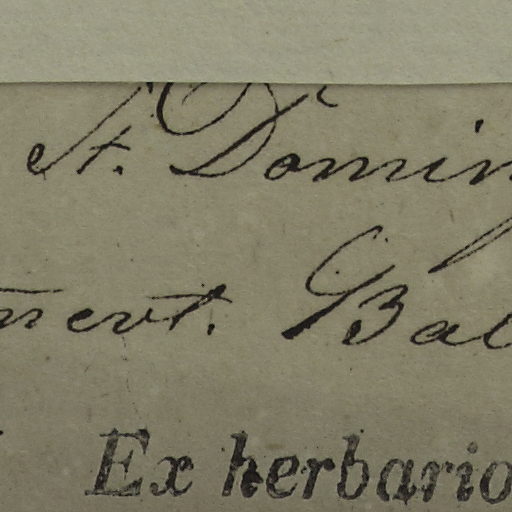 St. Domin
Bal
Ex herbario